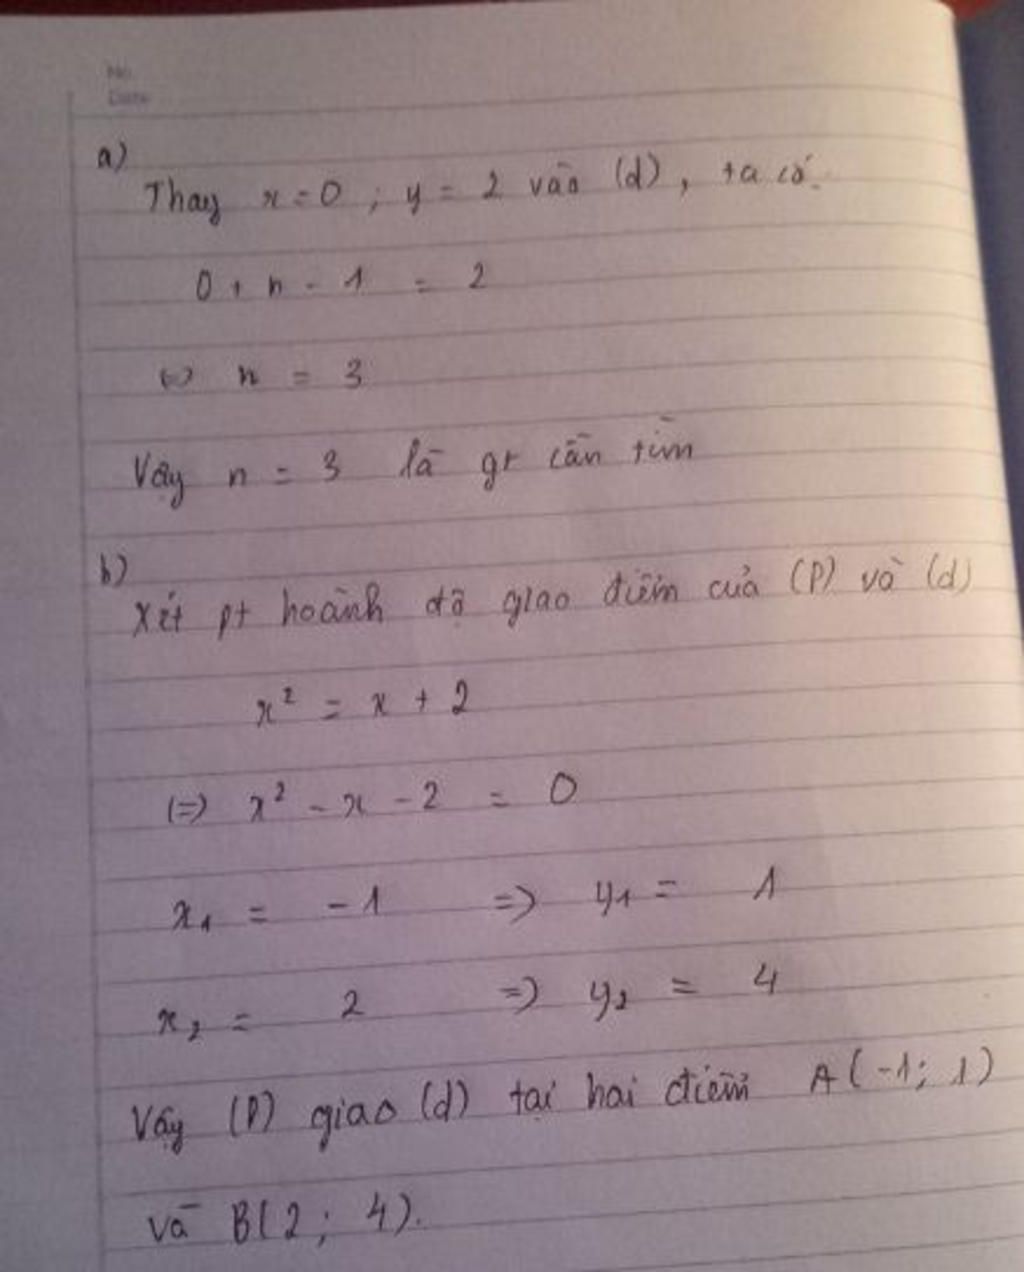 No.
Date
a)
Thay x = 0 ; y = 2 vào (d), ta có:
0 + n - 1 = 2
<=> n = 3
Vậy n = 3 là gt cần tìm
b)
Xét pt hoành độ giao điểm của (P) và (d)
x² = x + 2
(=) x² - x - 2 = 0
x₁ = -1 => y₁ = 1
x₂ = 2 => y₂ = 4
Vậy (P) giao (d) tại hai điểm A(-1; 1)
và B(2; 4).